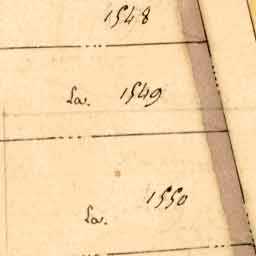 1548
La. 1549
La. 1550